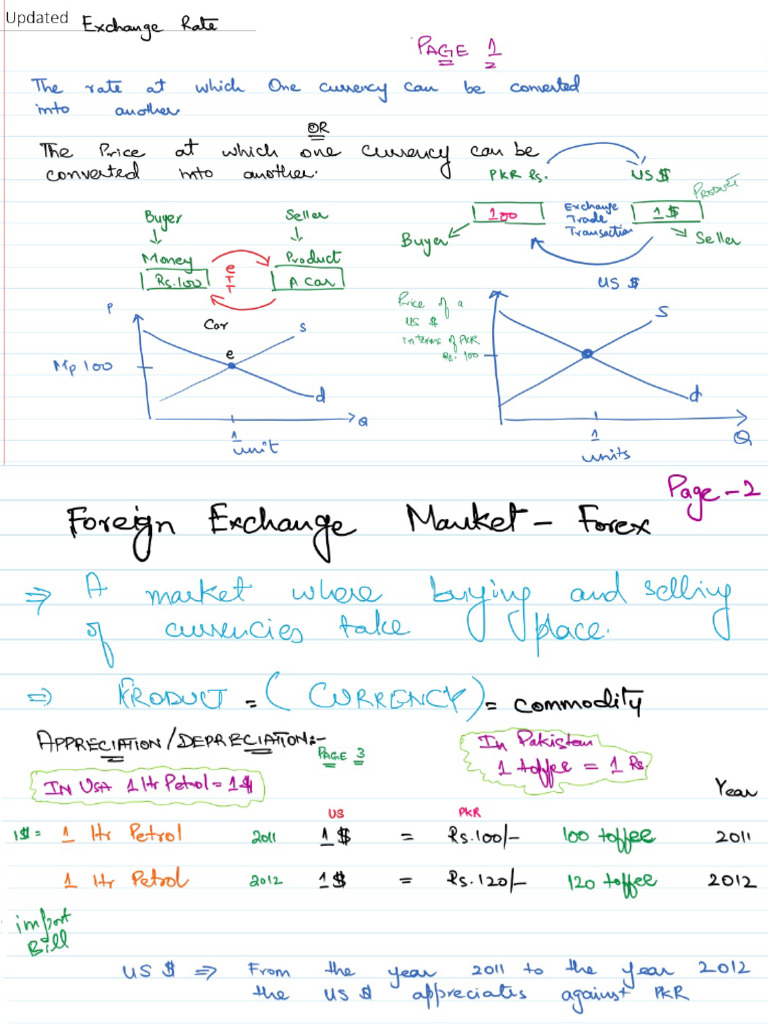 Updated
Exchange Rate
PAGE 1
The rate at which One currency can be converted
into another
OR
The Price at which one currency can be
converted into another.
PKR Rs. US $
PRODUCT
Buyer Seller
100 Exchange Trade Transaction 1 $
Buyer Seller
Money Product
Rs.100 ETT A Car
US $
Car
P
Mp 100
e
s
d
Q
1
unit
Price of a
US $
in terms of PKR
Rs. 100
S
d
Q
1
units
Page - 2
Foreign Exchange Market - Forex
⇒ A market where buying and selling
of currencies take place.
⇒ PRODUCT = (CURRENCY) = commodity
APPRECIATION/DEPRECIATION:-
PAGE 3
In Pakistan
1 toffee = 1 Rs.
IN USA 1 ltr Petrol = 1$
Year
US PKR
1$ = 1 ltr Petrol 2011 1$ = Rs.100/- 100 toffee 2011
1 ltr Petrol 2012 1$ = Rs.120/- 120 toffee 2012
import
Bill
US $ ⇒ From the year 2011 to the year 2012
the US $ appreciates against PKR